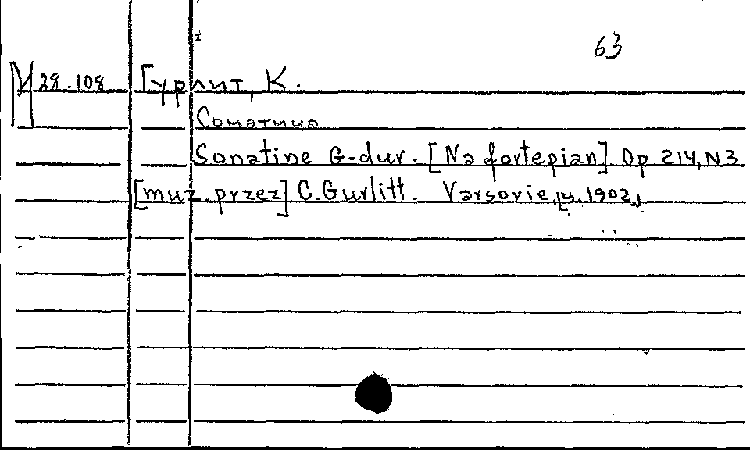 63
М 29.108 Гурлит, К.
Сонатина
Sonatine G-dur. [Na fortepian]. Op 214, N3.
[muz. przez] C. Gurlitt. Varsovie, 1902,